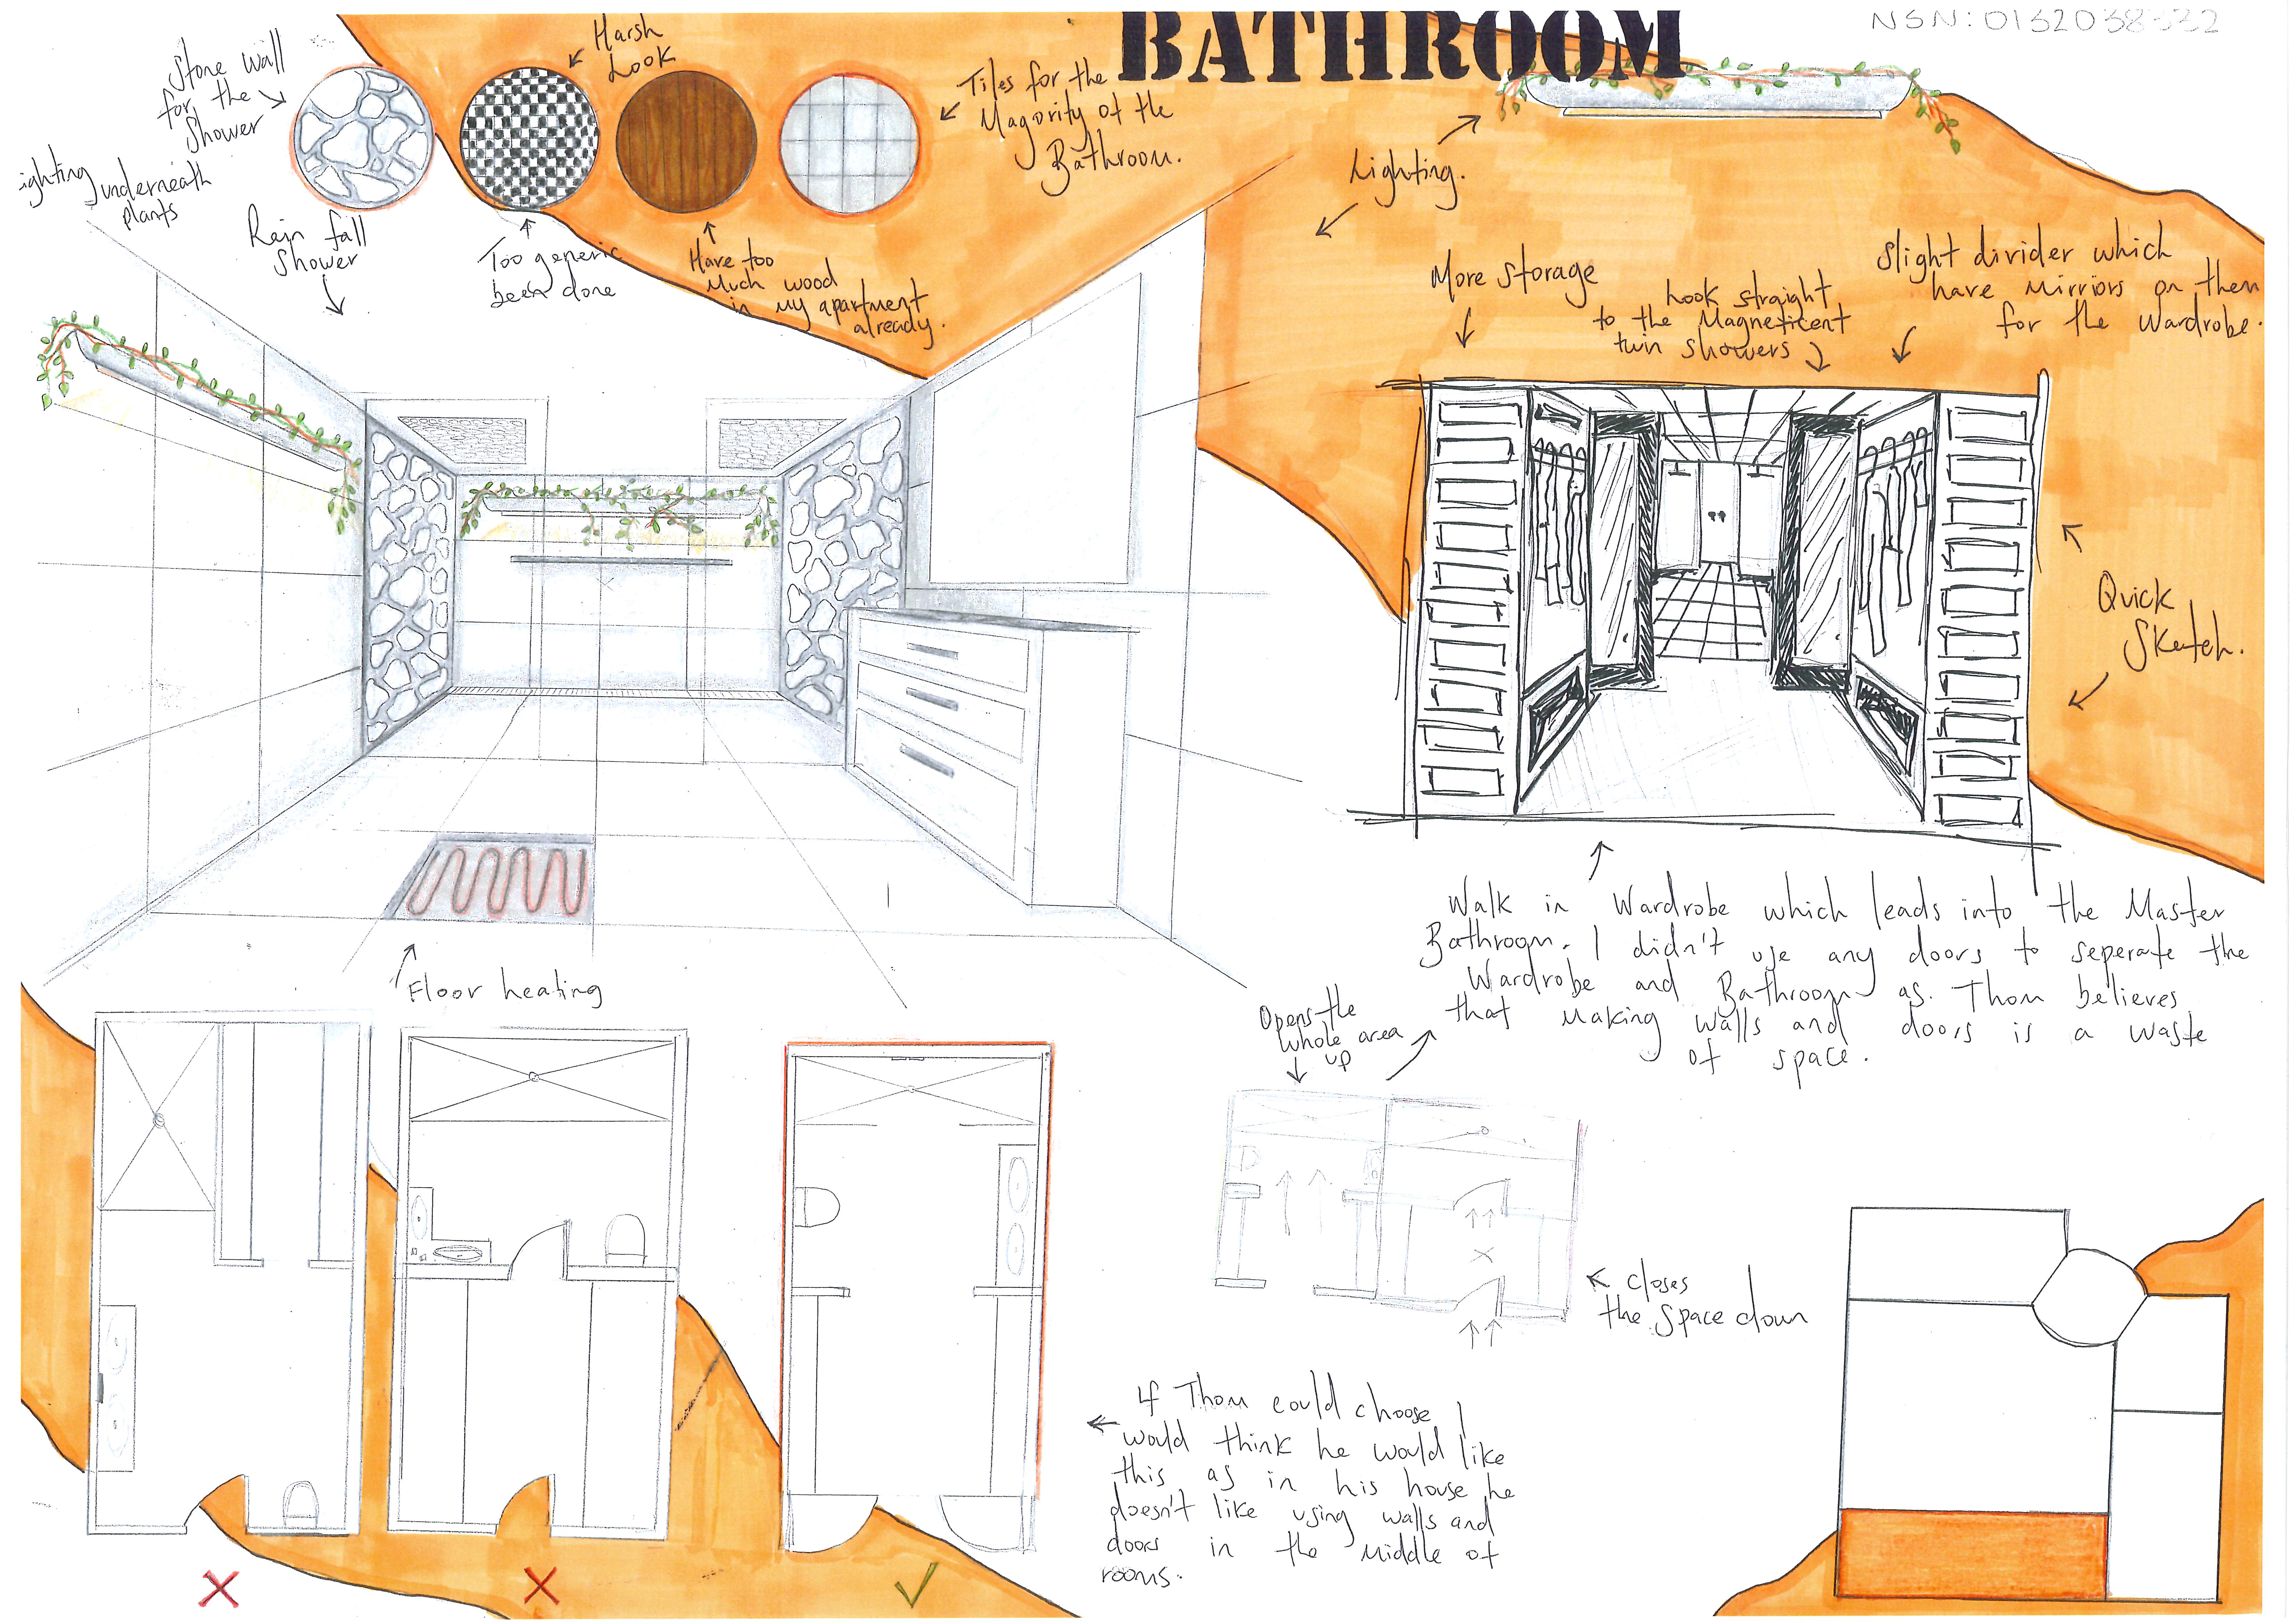 BATHROOM
NSN: 0132038332
Stone Wall
for the
Shower
Harsh
Look
Tiles for the
Magority of the
Bathroom.
Lighting.
ighting underneath
plants
Rain fall
Shower
Too generic
been done
Have too
Much wood
in my apartment
already.
More storage
Look straight
to the Magneticent
twin showers
Slight divider which
have mirriors on them
for the Wardrobe.
Quick
Sketch.
Floor heating
Walk in Wardrobe which leads into the Master
Bathroom. I didn't use any doors to seperate the
Wardrobe and Bathroom as Thom believes
that making walls and doors is a waste
of space.
Opens the
whole area
up
Closes
the Space down
If Thom could choose I
would think he would like
this as in his house he
doesn't like using walls and
doors in the middle of
rooms.